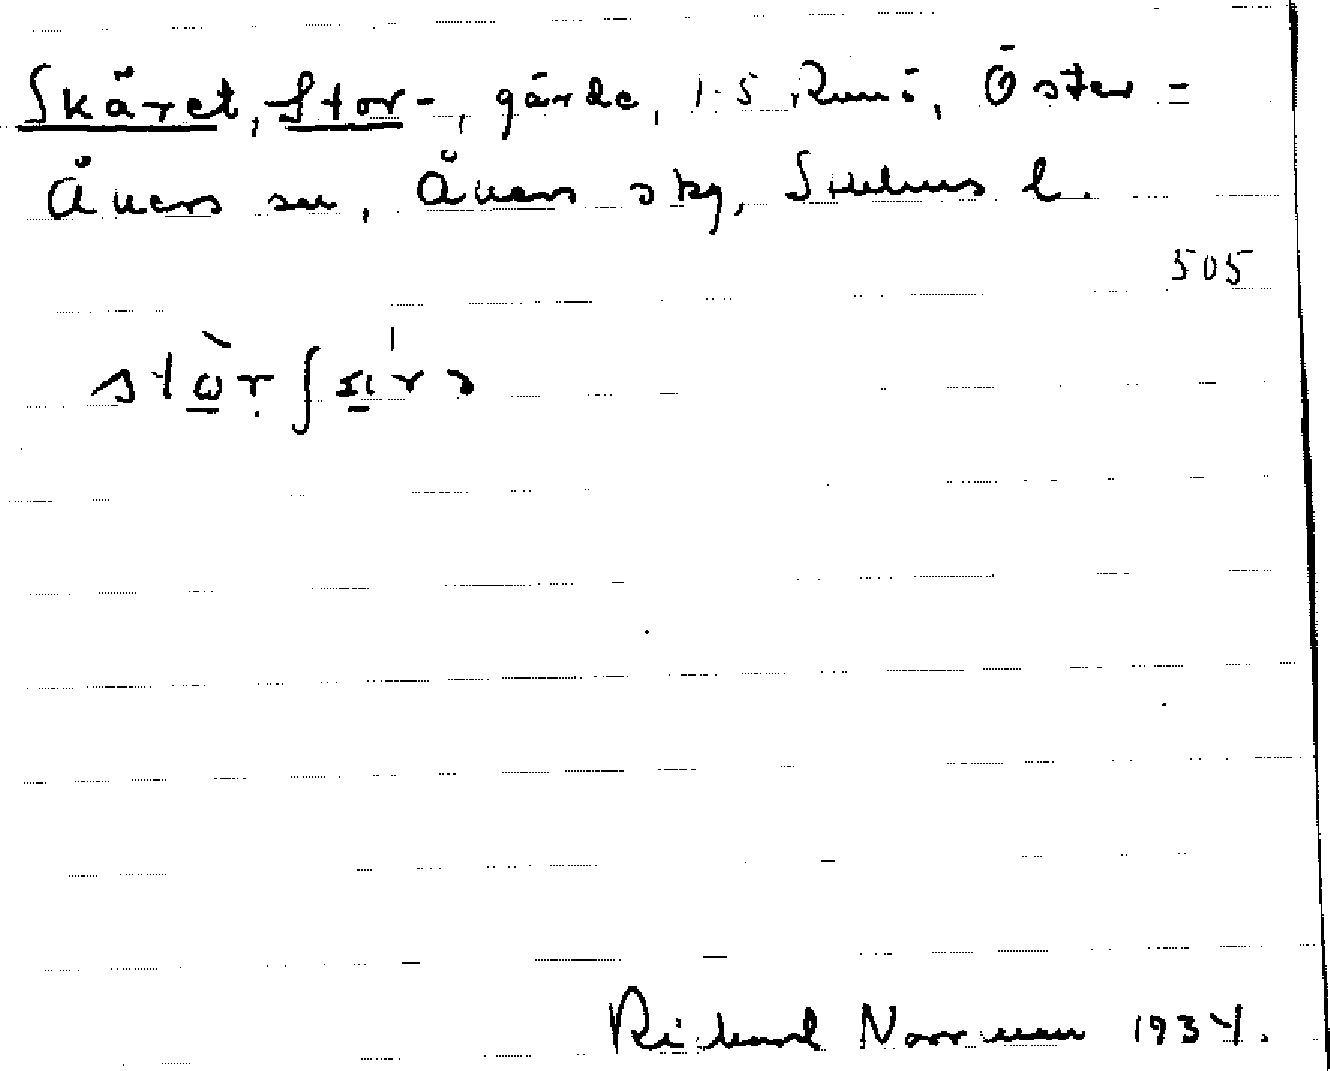 Skäret, Stor-, gärde, 1-5 Runö, Öster-
Åkers sn, Åkers skg, Sthlms l.
505
Richard Norrman 1934.